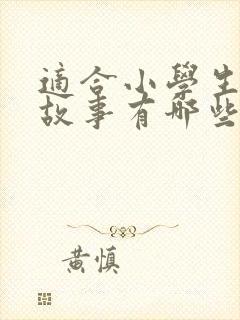 適合小學生
故事有哪些
黃慎